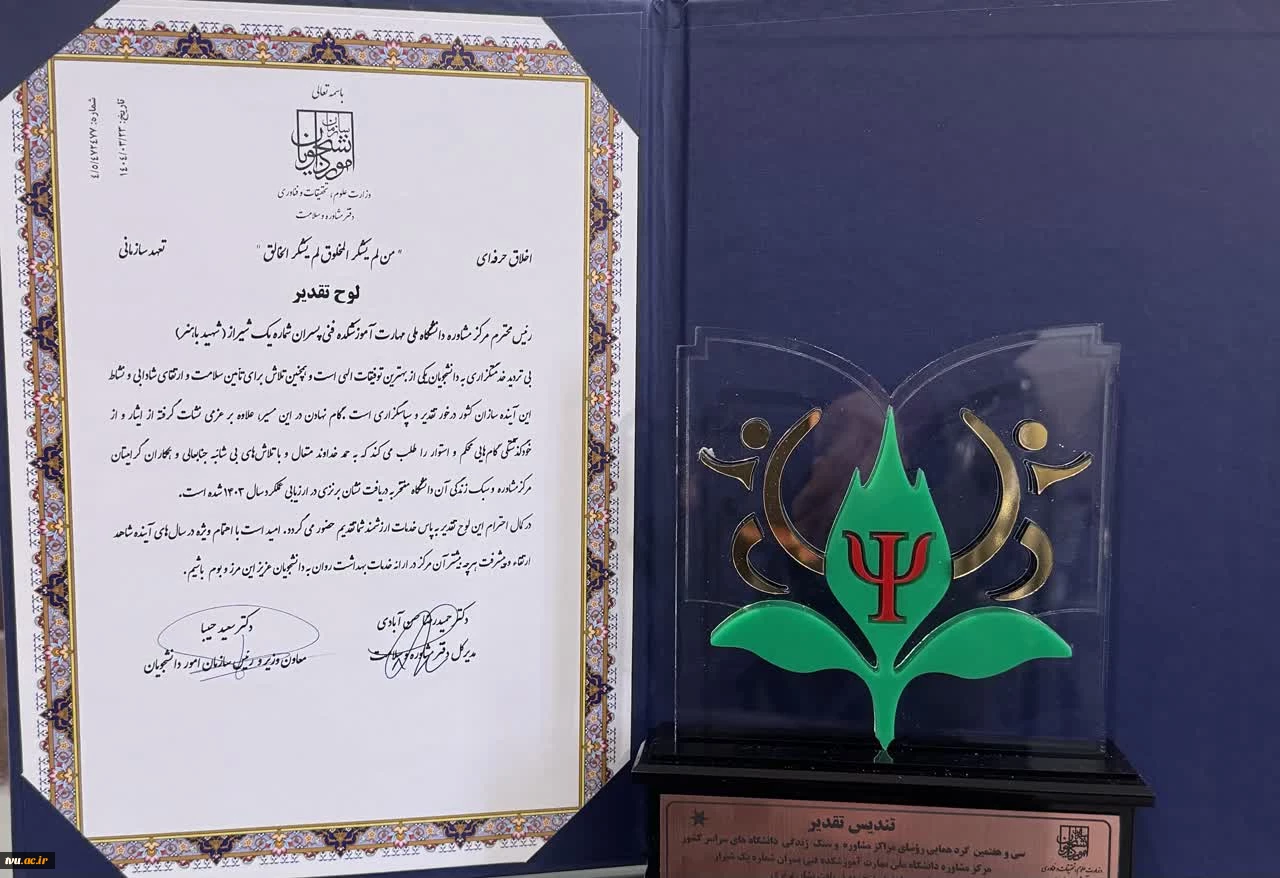 باسمه تعالی
شماره: ۴/۵/۴۷۲۴۷۷
تاریخ: ۱۴۰۴/۰۳/۲۳
سازمان امور دانشجویان
وزارت علوم، تحقیقات و فناوری
دفتر مشاوره و سلامت
اخلاق حرفه‌ای " من لم یشکر المخلوق لم یشکر الخالق " تعهد سازمانی
لوح تقدیر
رئیس محترم مرکز مشاوره دانشگاه ملی مهارت آموزشکده فنی پسران شماره یک شیراز (شهید باهنر)
بی تردید خدمتگزاری به دانشجویان یکی از بهترین توفیقات الهی است و همچنین تلاش برای تامین سلامت و ارتقای شادابی و نشاط
این آینده سازان کشور درخور تقدیر و سپاسگزاری است. گام نهادن در این مسیر، علاوه بر عزمی نشات گرفته از ایثار و از
خودگذشتگی گام‌هایی محکم و استوار را طلب می کند که به حمد خداوند متعال و با تلاش‌های بی شائبه جنابعالی و همکاران گرامیتان
مرکز مشاوره و سبک زندگی آن دانشگاه مفتخر به دریافت نشان برنزی در ارزیابی عملکرد سال ۱۴۰۳ شده است.
در کمال احترام این لوح تقدیر به پاس خدمات ارزشمند شما تقدیم حضور می گردد. امید است با اهتمام ویژه در سال‌های آینده شاهد
ارتقاء و پیشرفت هرچه بیشتر آن مرکز در ارائه خدمات بهداشت روان به دانشجویان عزیز این مرز و بوم باشیم.
دکتر حمیدرضا حسن آبادی
مدیرکل دفتر مشاوره و سلامت
دکتر سعید حبیبا
معاون وزیر و رئیس سازمان امور دانشجویان
Ψ
تندیس تقدیر
سی و هفتمین گردهمایی رؤسای مراکز مشاوره و سبک زندگی دانشگاه های سراسر کشور
مرکز مشاوره دانشگاه ملی مهارت آموزشکده فنی پسران شماره یک شیراز
سازمان امور دانشجویان
وزارت علوم، تحقیقات و فناوری
tvu.ac.ir